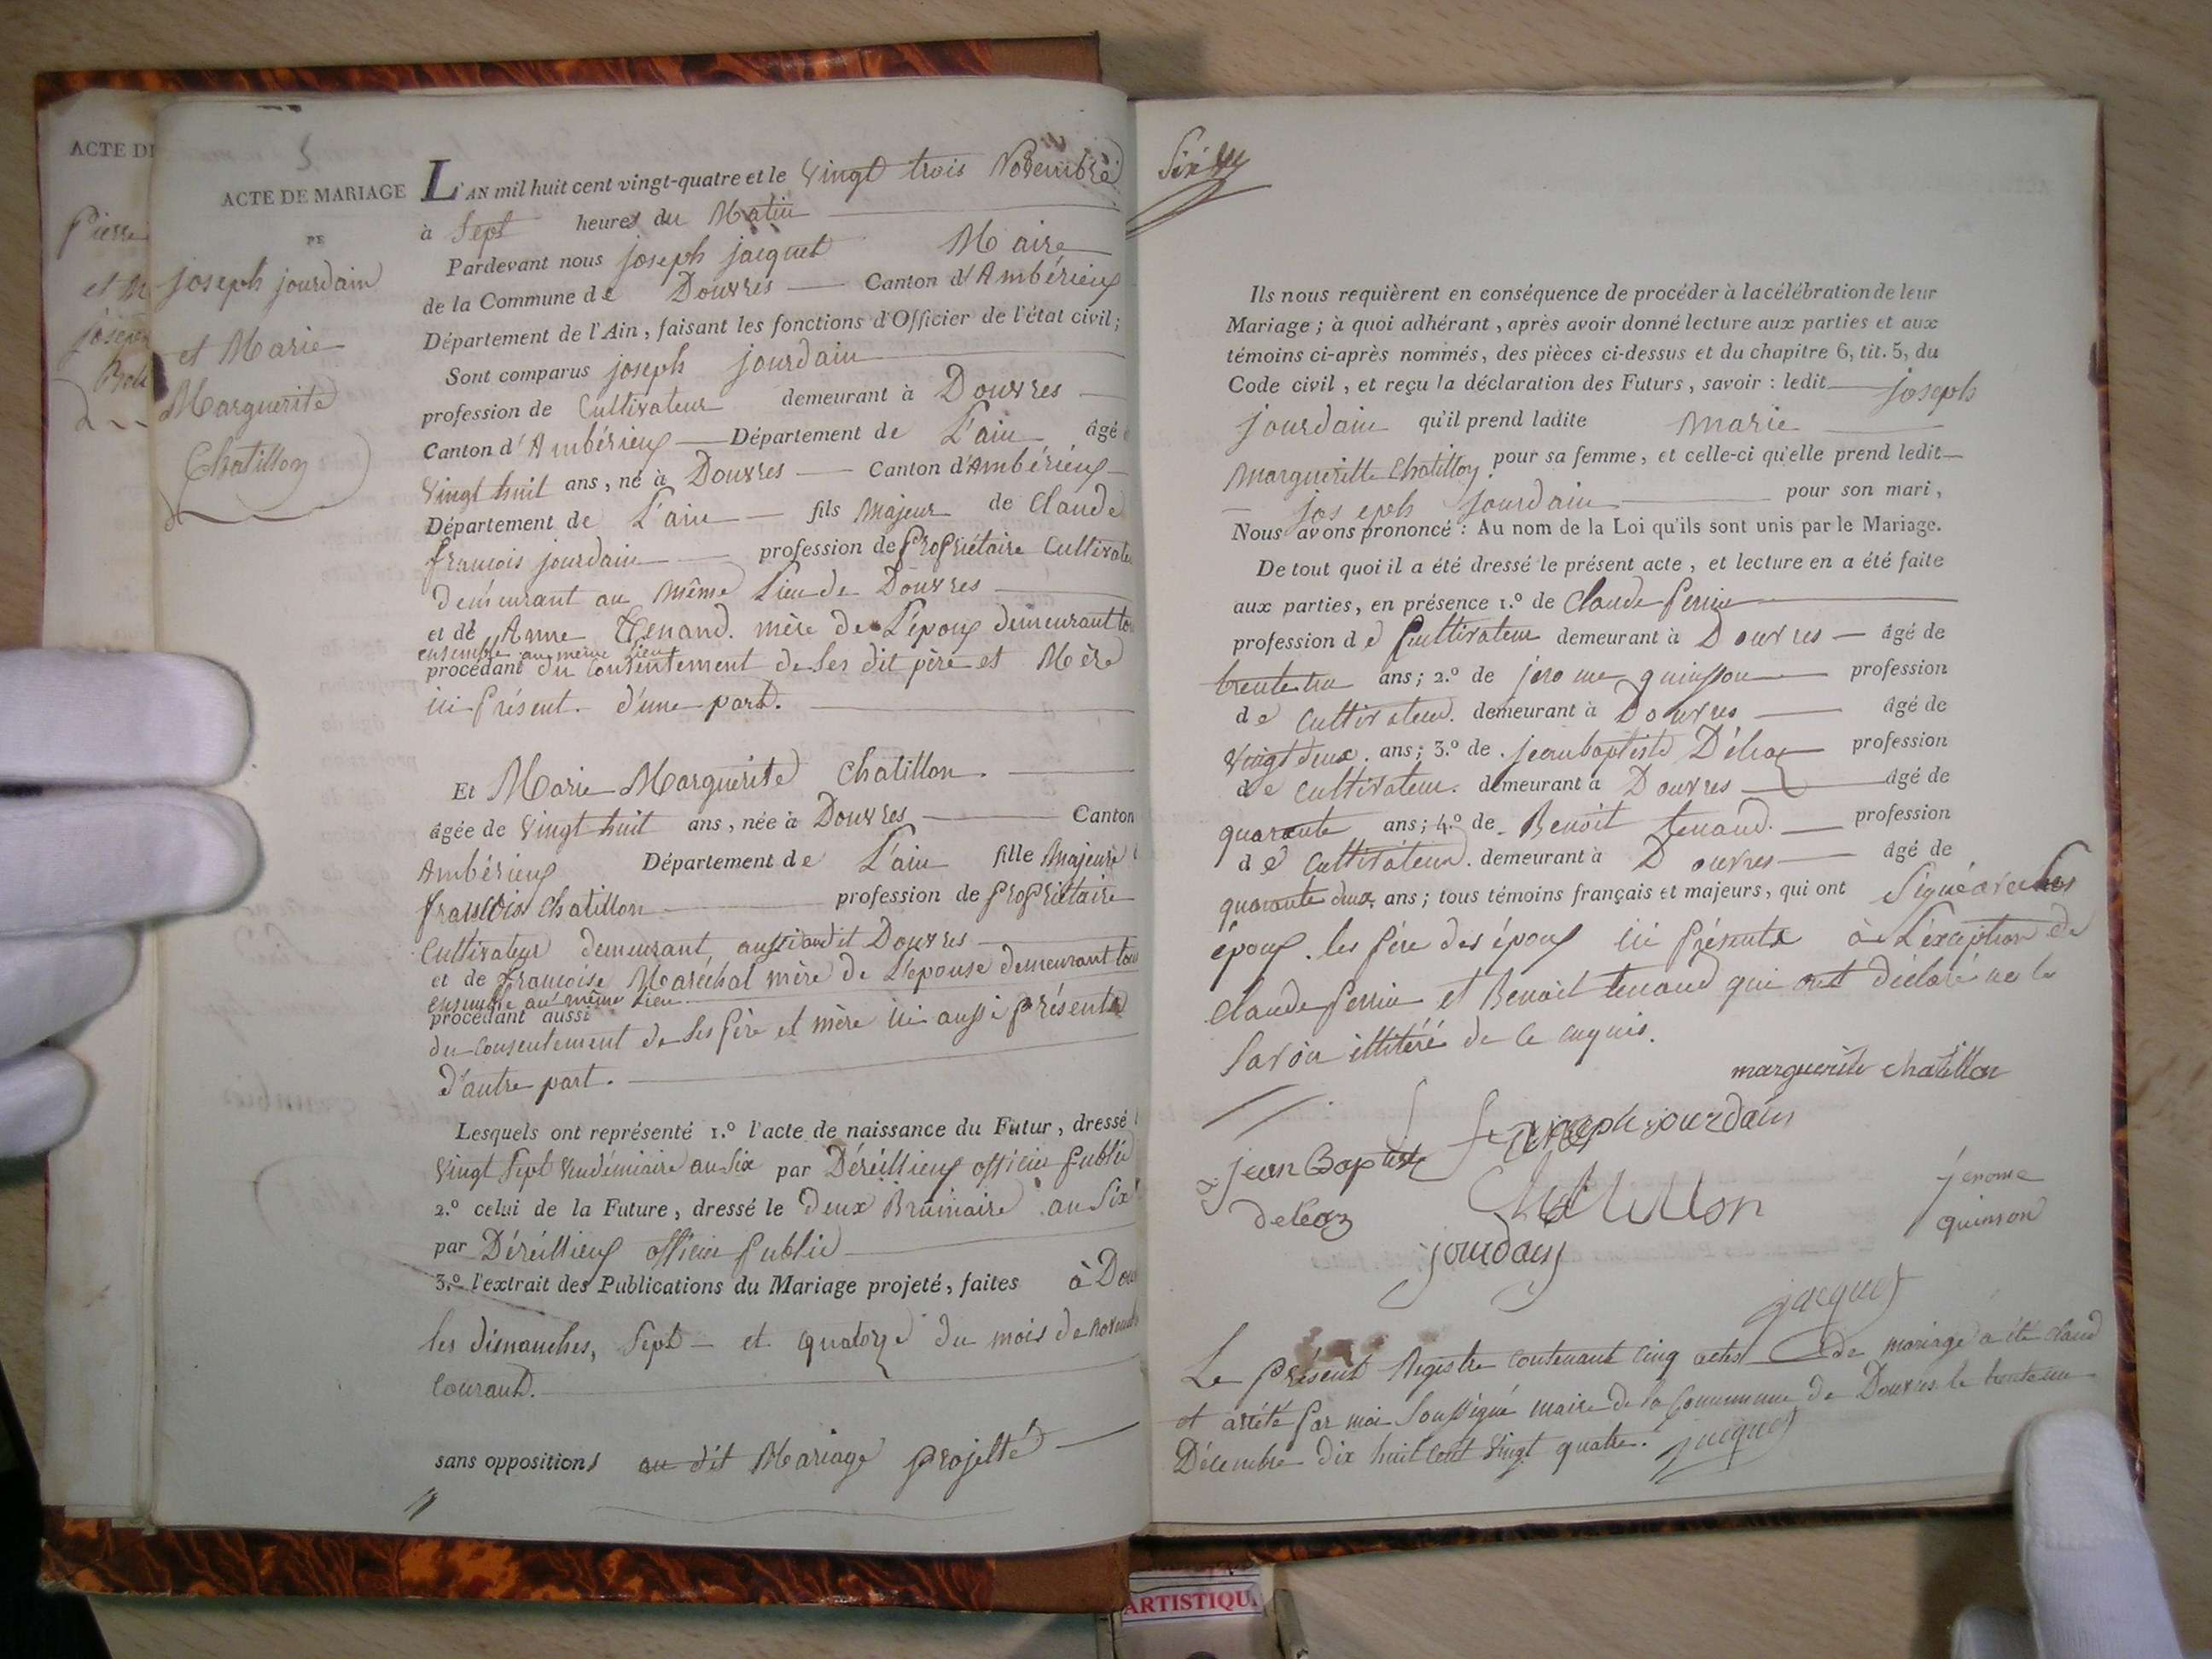 ACTE DE
Pierre
et M
joseph
5
ACTE DE MARIAGE
DE
joseph jourdain
et Marie
Marguerite
Chatillon
L'AN mil huit cent vingt-quatre et le vingt trois Novembre
à Sept heures du Matin
Pardevant nous joseph jacquet Maire
de la Commune de Douvres Canton d'Ambérieux
Département de l'Ain, faisant les fonctions d'Officier de l'état civil;
Sont comparus joseph jourdain
profession de Cultivateur demeurant à Douvres
Canton d'Ambérieux Département de L'ain âgé
vingt huit ans, né à Douvres Canton d'Ambérieux
Département de L'ain fils Majeur de Claude
françois jourdain profession de Propriétaire Cultivate
demeurant au même Lieu de Douvres
et de Anne Tenand. mère de L'époux demeurant tou
ensemble au même Lieu
procédant du Consentement de ses dit père et Mère
ici Présent. d'une part.
Et Marie Marguerite Chatillon.
âgée de vingt huit ans, née à Douvres Canton
Ambérieux Département de L'ain fille Majeure
françois Chatillon profession de Propriétaire
Cultivateur demeurant aussi audit Douvres
et de françoise Maréchal mère de L'épouse demeurant tou
ensemble au même Lieu
procédant aussi
du Consentement de ses père et mère ici aussi présents
d'autre part.
Lesquels ont représenté 1.º l'acte de naissance du Futur, dressé
vingt Sept vendémiaire an Six par Déréillieux officier Public
2.º celui de la Future, dressé le deux Brumaire an Six
par Déréillieux officier Public
3.º l'extrait des Publications du Mariage projeté, faites à Dou
les dimanches, Sept et quatorze du mois de Novemb
Courant.
sans oppositions au dit Mariage projetté
Six
Ils nous requièrent en conséquence de procéder à la célébration de leur
Mariage; à quoi adhérant, après avoir donné lecture aux parties et aux
témoins ci-après nommés, des pièces ci-dessus et du chapitre 6, tit. 5, du
Code civil, et reçu la déclaration des Futurs, savoir: ledit joseph
jourdain qu'il prend ladite Marie
Margueritte Chatillon pour sa femme, et celle-ci qu'elle prend ledit
joseph jourdain pour son mari,
Nous avons prononcé: Au nom de la Loi qu'ils sont unis par le Mariage.
De tout quoi il a été dressé le présent acte, et lecture en a été faite
aux parties, en présence 1.º de Claude Perrin
profession de Cultivateur demeurant à Douvres âgé de
trente un ans; 2.º de jerome quinson profession
de Cultivateur. demeurant à Douvres âgé de
vingt deux. ans; 3.º de jean baptiste Déléaz profession
de Cultivateur. demeurant à Douvres âgé de
quarante ans; 4.º de Benoit tenand. profession
de Cultivateur. demeurant à Douvres âgé de
quarante deux ans; tous témoins français et majeurs, qui ont Signé avec les
époux. les Père des époux ici Présents à L'exception de
Claude Perrin et Benoit tenand qui ont déclaré ne le
Savoir illitéré de ce enquis.
marguerite chatillon
joseph jourdain
jean Baptiste
deléaz
Chatillon
jerome
quinson
jourdain
jacquet
Le Présent Registre Contenant Cinq actes de mariage a été Claud
et arrêté Par moi Soussigné maire de la Commune de Douvres le trente un
Décembre dix huit cent vingt quatre. jacquet
ARTISTIQU